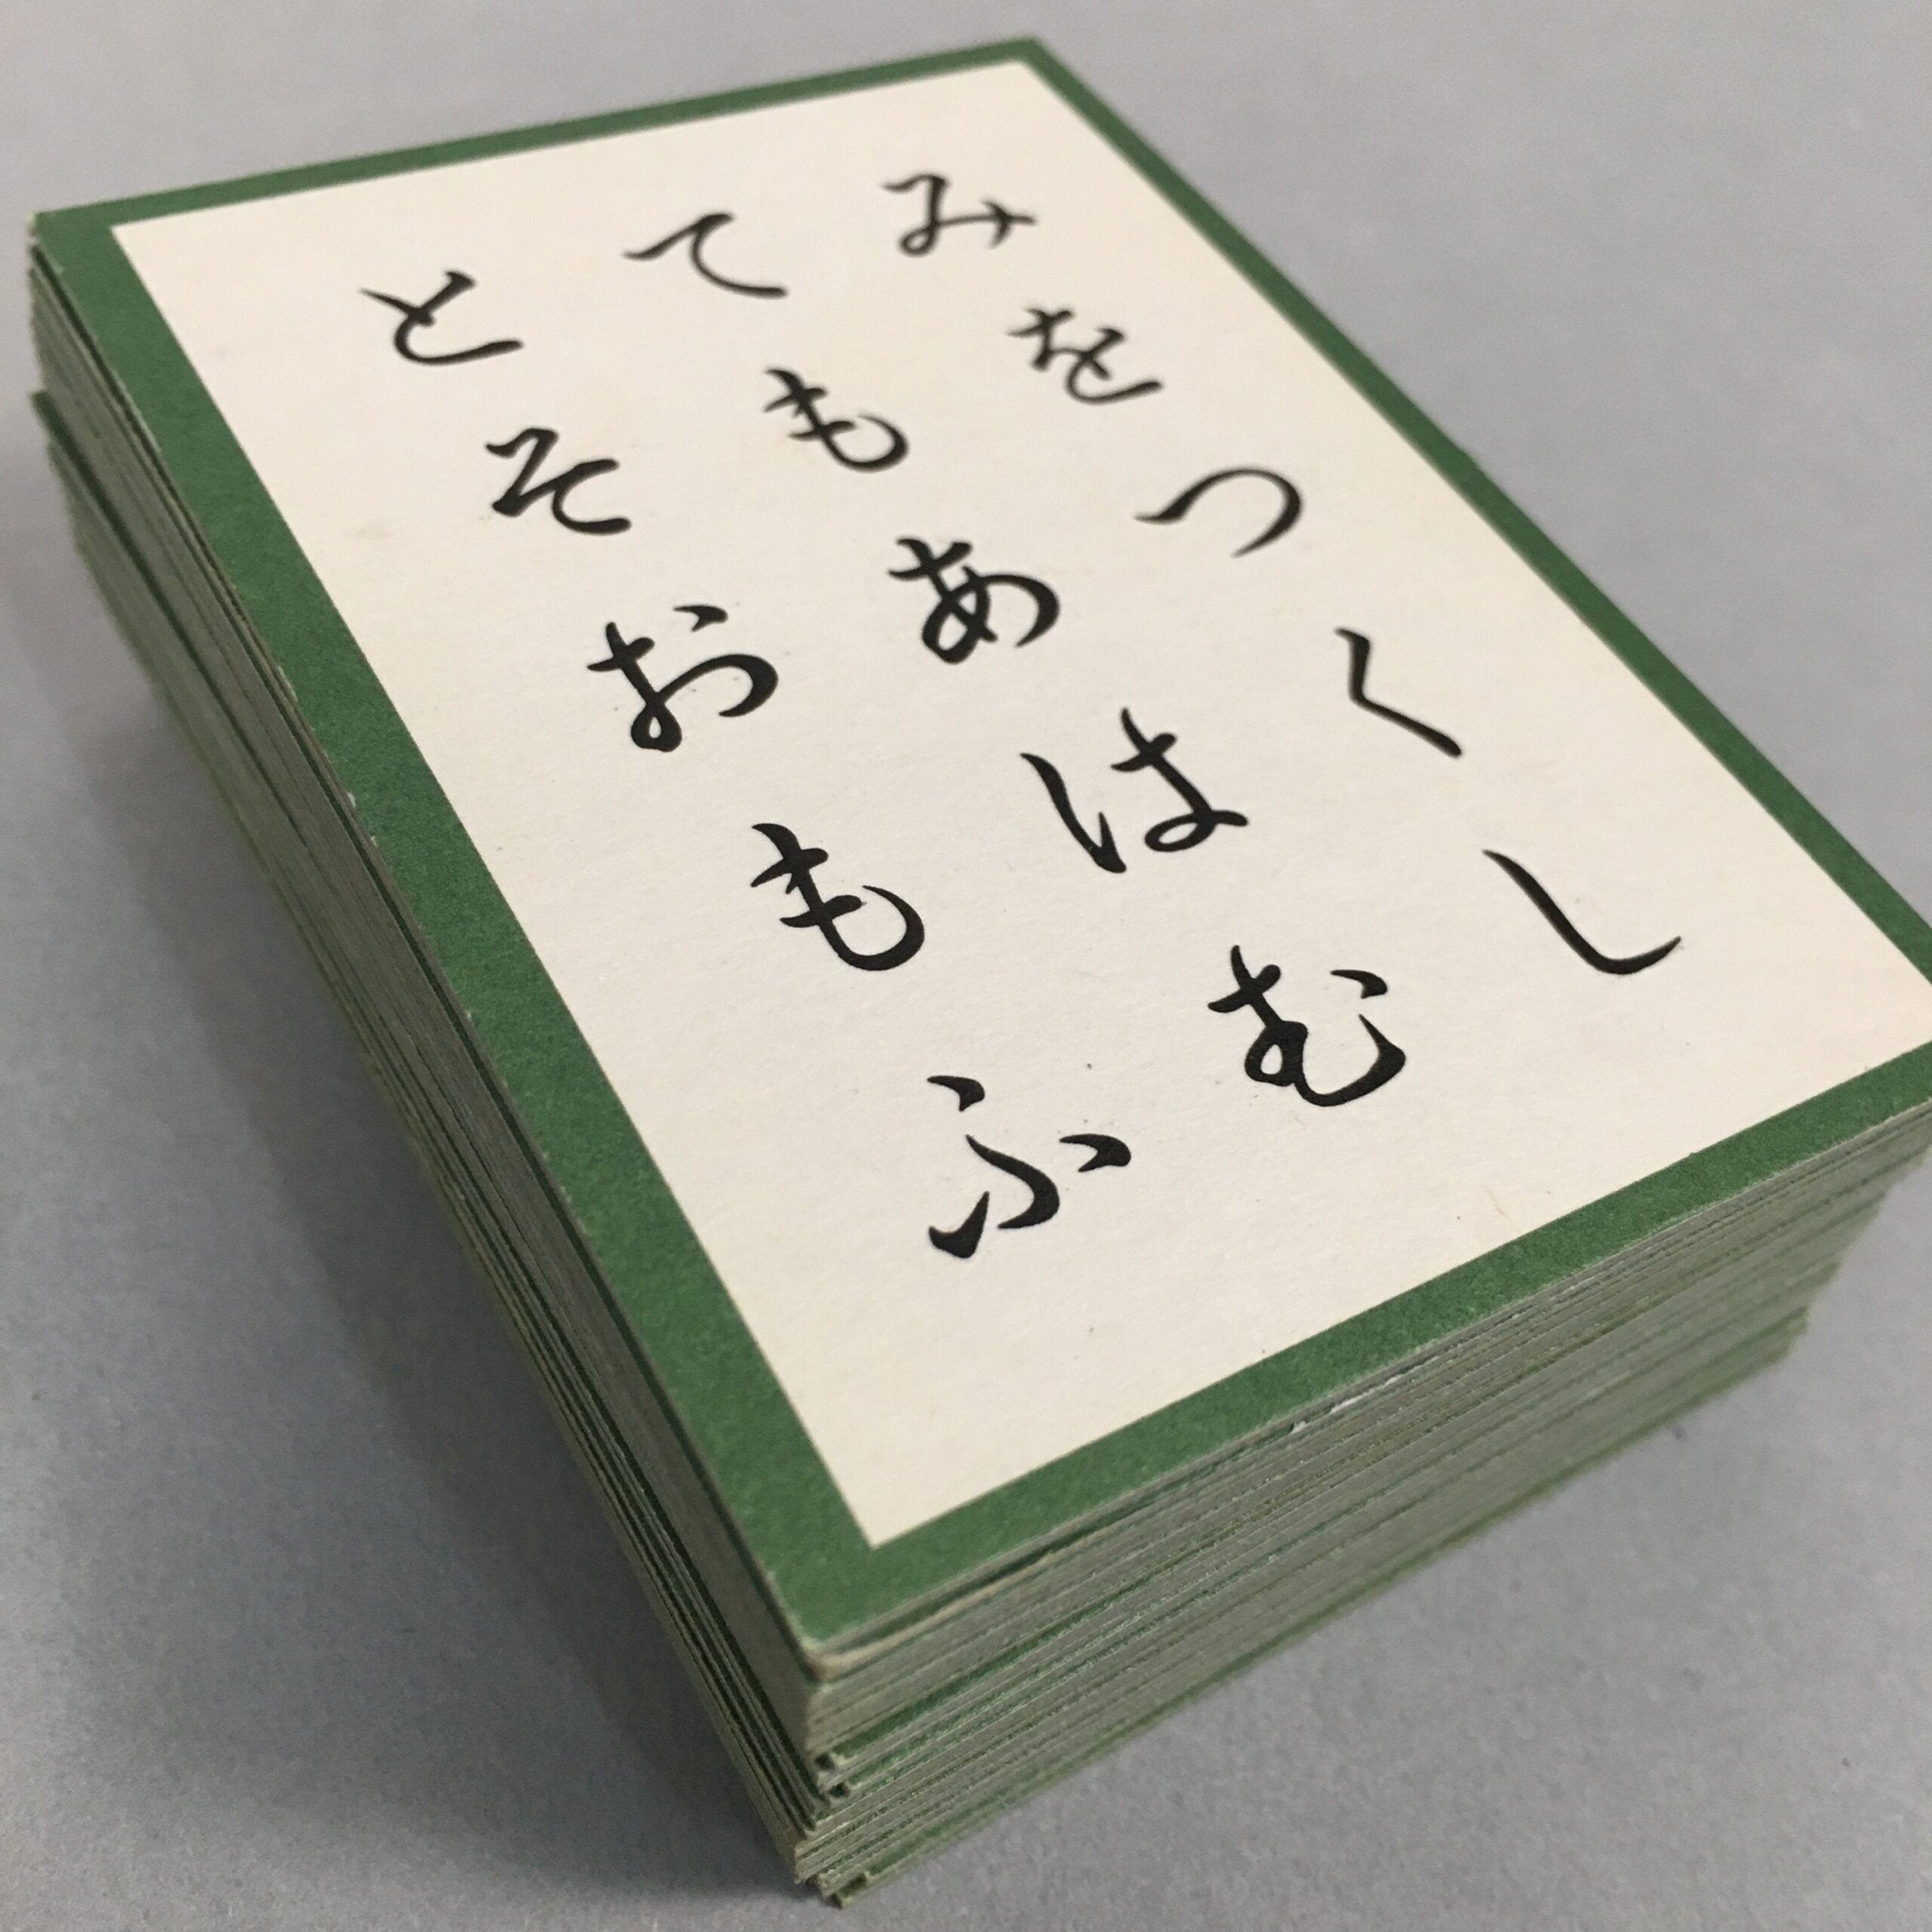 みをつくし
てもあはむ
とそおもふ